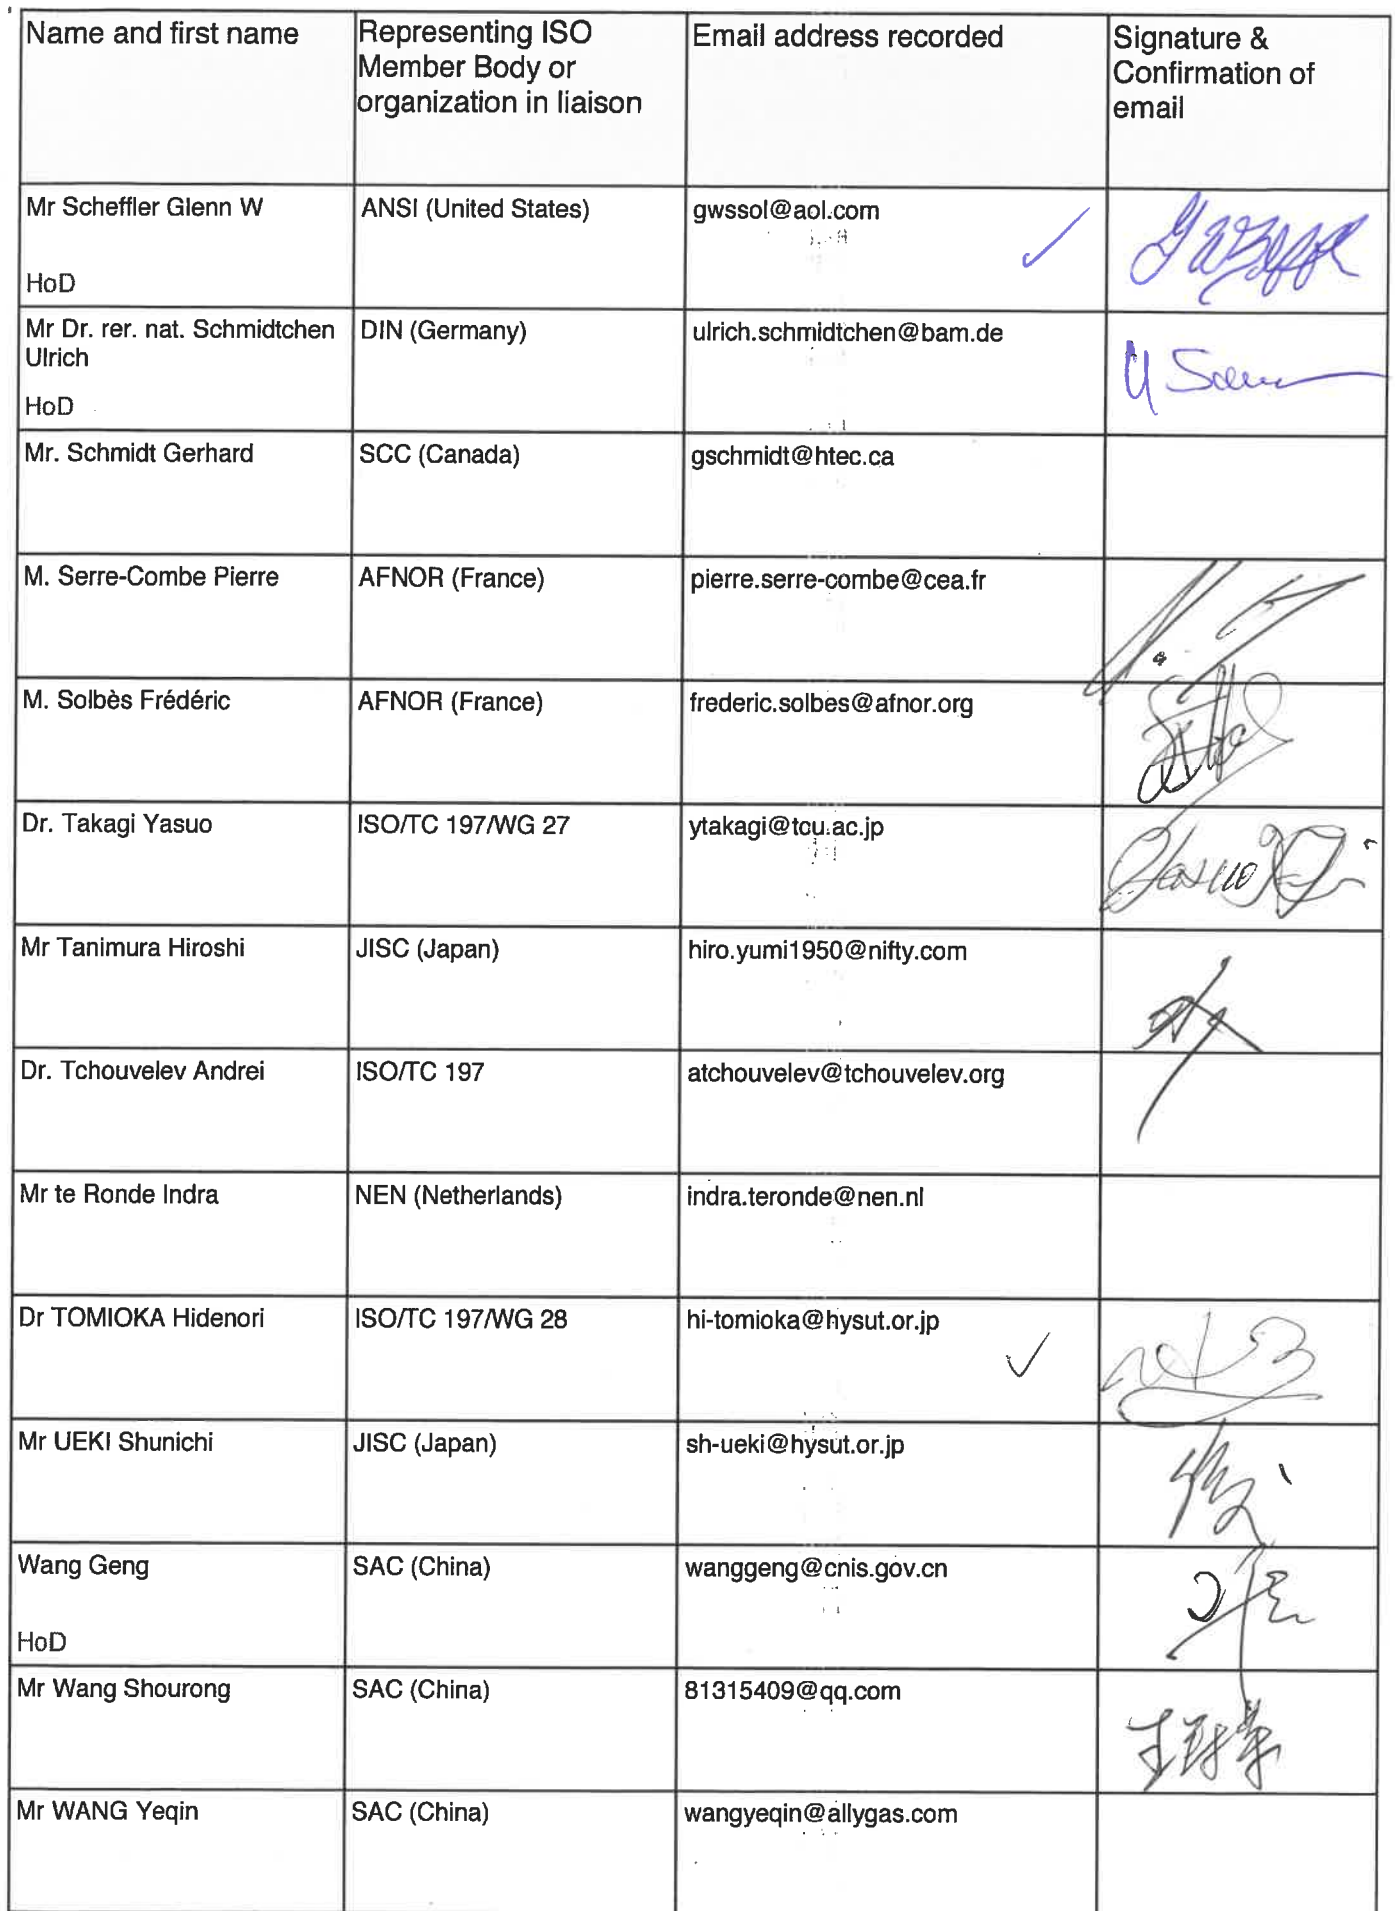 Name and first name
Representing ISO
Member Body or
organization in liaison
Email address recorded
Signature &
Confirmation of
email
Mr Scheffler Glenn W
HoD
ANSI (United States)
gwssol@aol.com
Mr Dr. rer. nat. Schmidtchen
Ulrich
HoD
DIN (Germany)
ulrich.schmidtchen@bam.de
Mr. Schmidt Gerhard
SCC (Canada)
gschmidt@htec.ca
M. Serre-Combe Pierre
AFNOR (France)
pierre.serre-combe@cea.fr
M. Solbès Frédéric
AFNOR (France)
frederic.solbes@afnor.org
Dr. Takagi Yasuo
ISO/TC 197/WG 27
ytakagi@tcu.ac.jp
Mr Tanimura Hiroshi
JISC (Japan)
hiro.yumi1950@nifty.com
Dr. Tchouvelev Andrei
ISO/TC 197
atchouvelev@tchouvelev.org
Mr te Ronde Indra
NEN (Netherlands)
indra.teronde@nen.nl
Dr TOMIOKA Hidenori
ISO/TC 197/WG 28
hi-tomioka@hysut.or.jp
Mr UEKI Shunichi
JISC (Japan)
sh-ueki@hysut.or.jp
Wang Geng
HoD
SAC (China)
wanggeng@cnis.gov.cn
Mr Wang Shourong
SAC (China)
81315409@qq.com
Mr WANG Yeqin
SAC (China)
wangyeqin@allygas.com